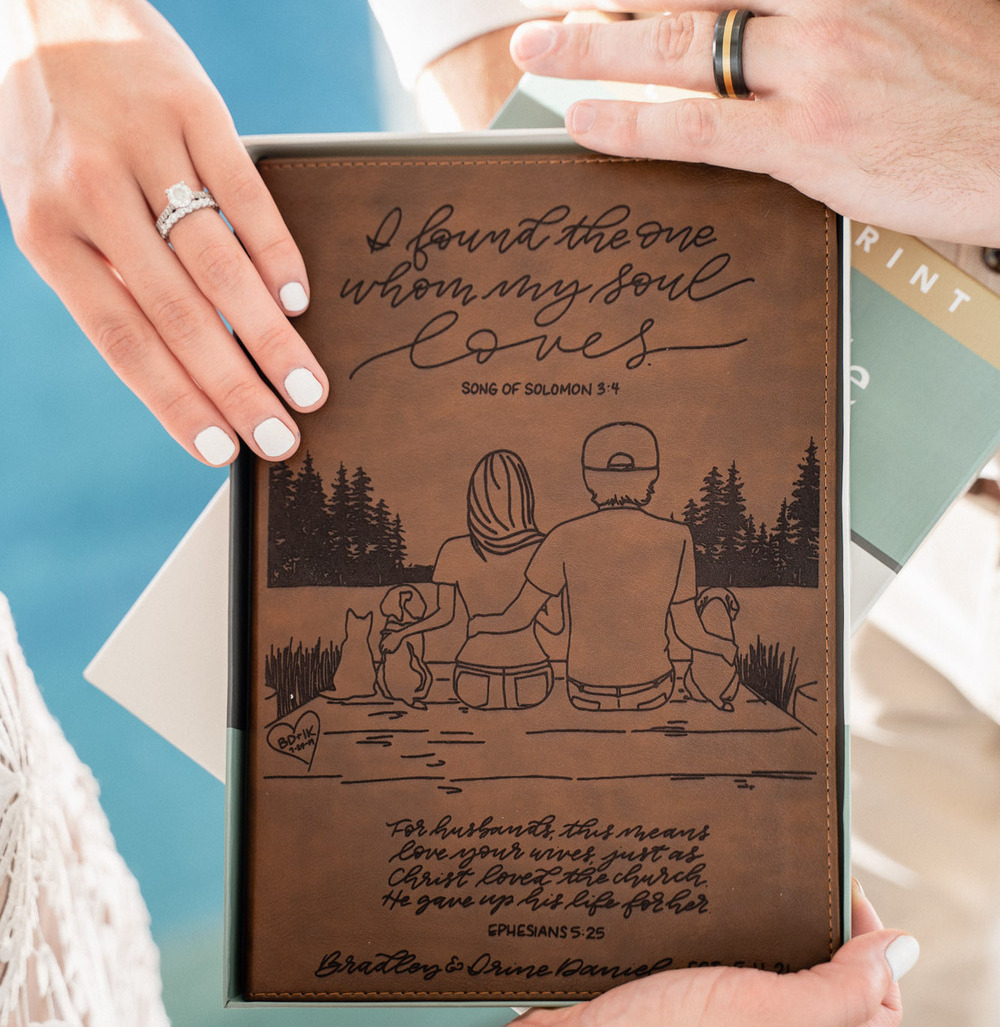 I found the one
whom my soul
loves.
SONG OF SOLOMON 3:4
BD+IK
For husbands, this means
love your wives, just as
Christ loved the church.
He gave up his life for her.
EPHESIANS 5:25
Bradley & Irine Daniel
RINT
e